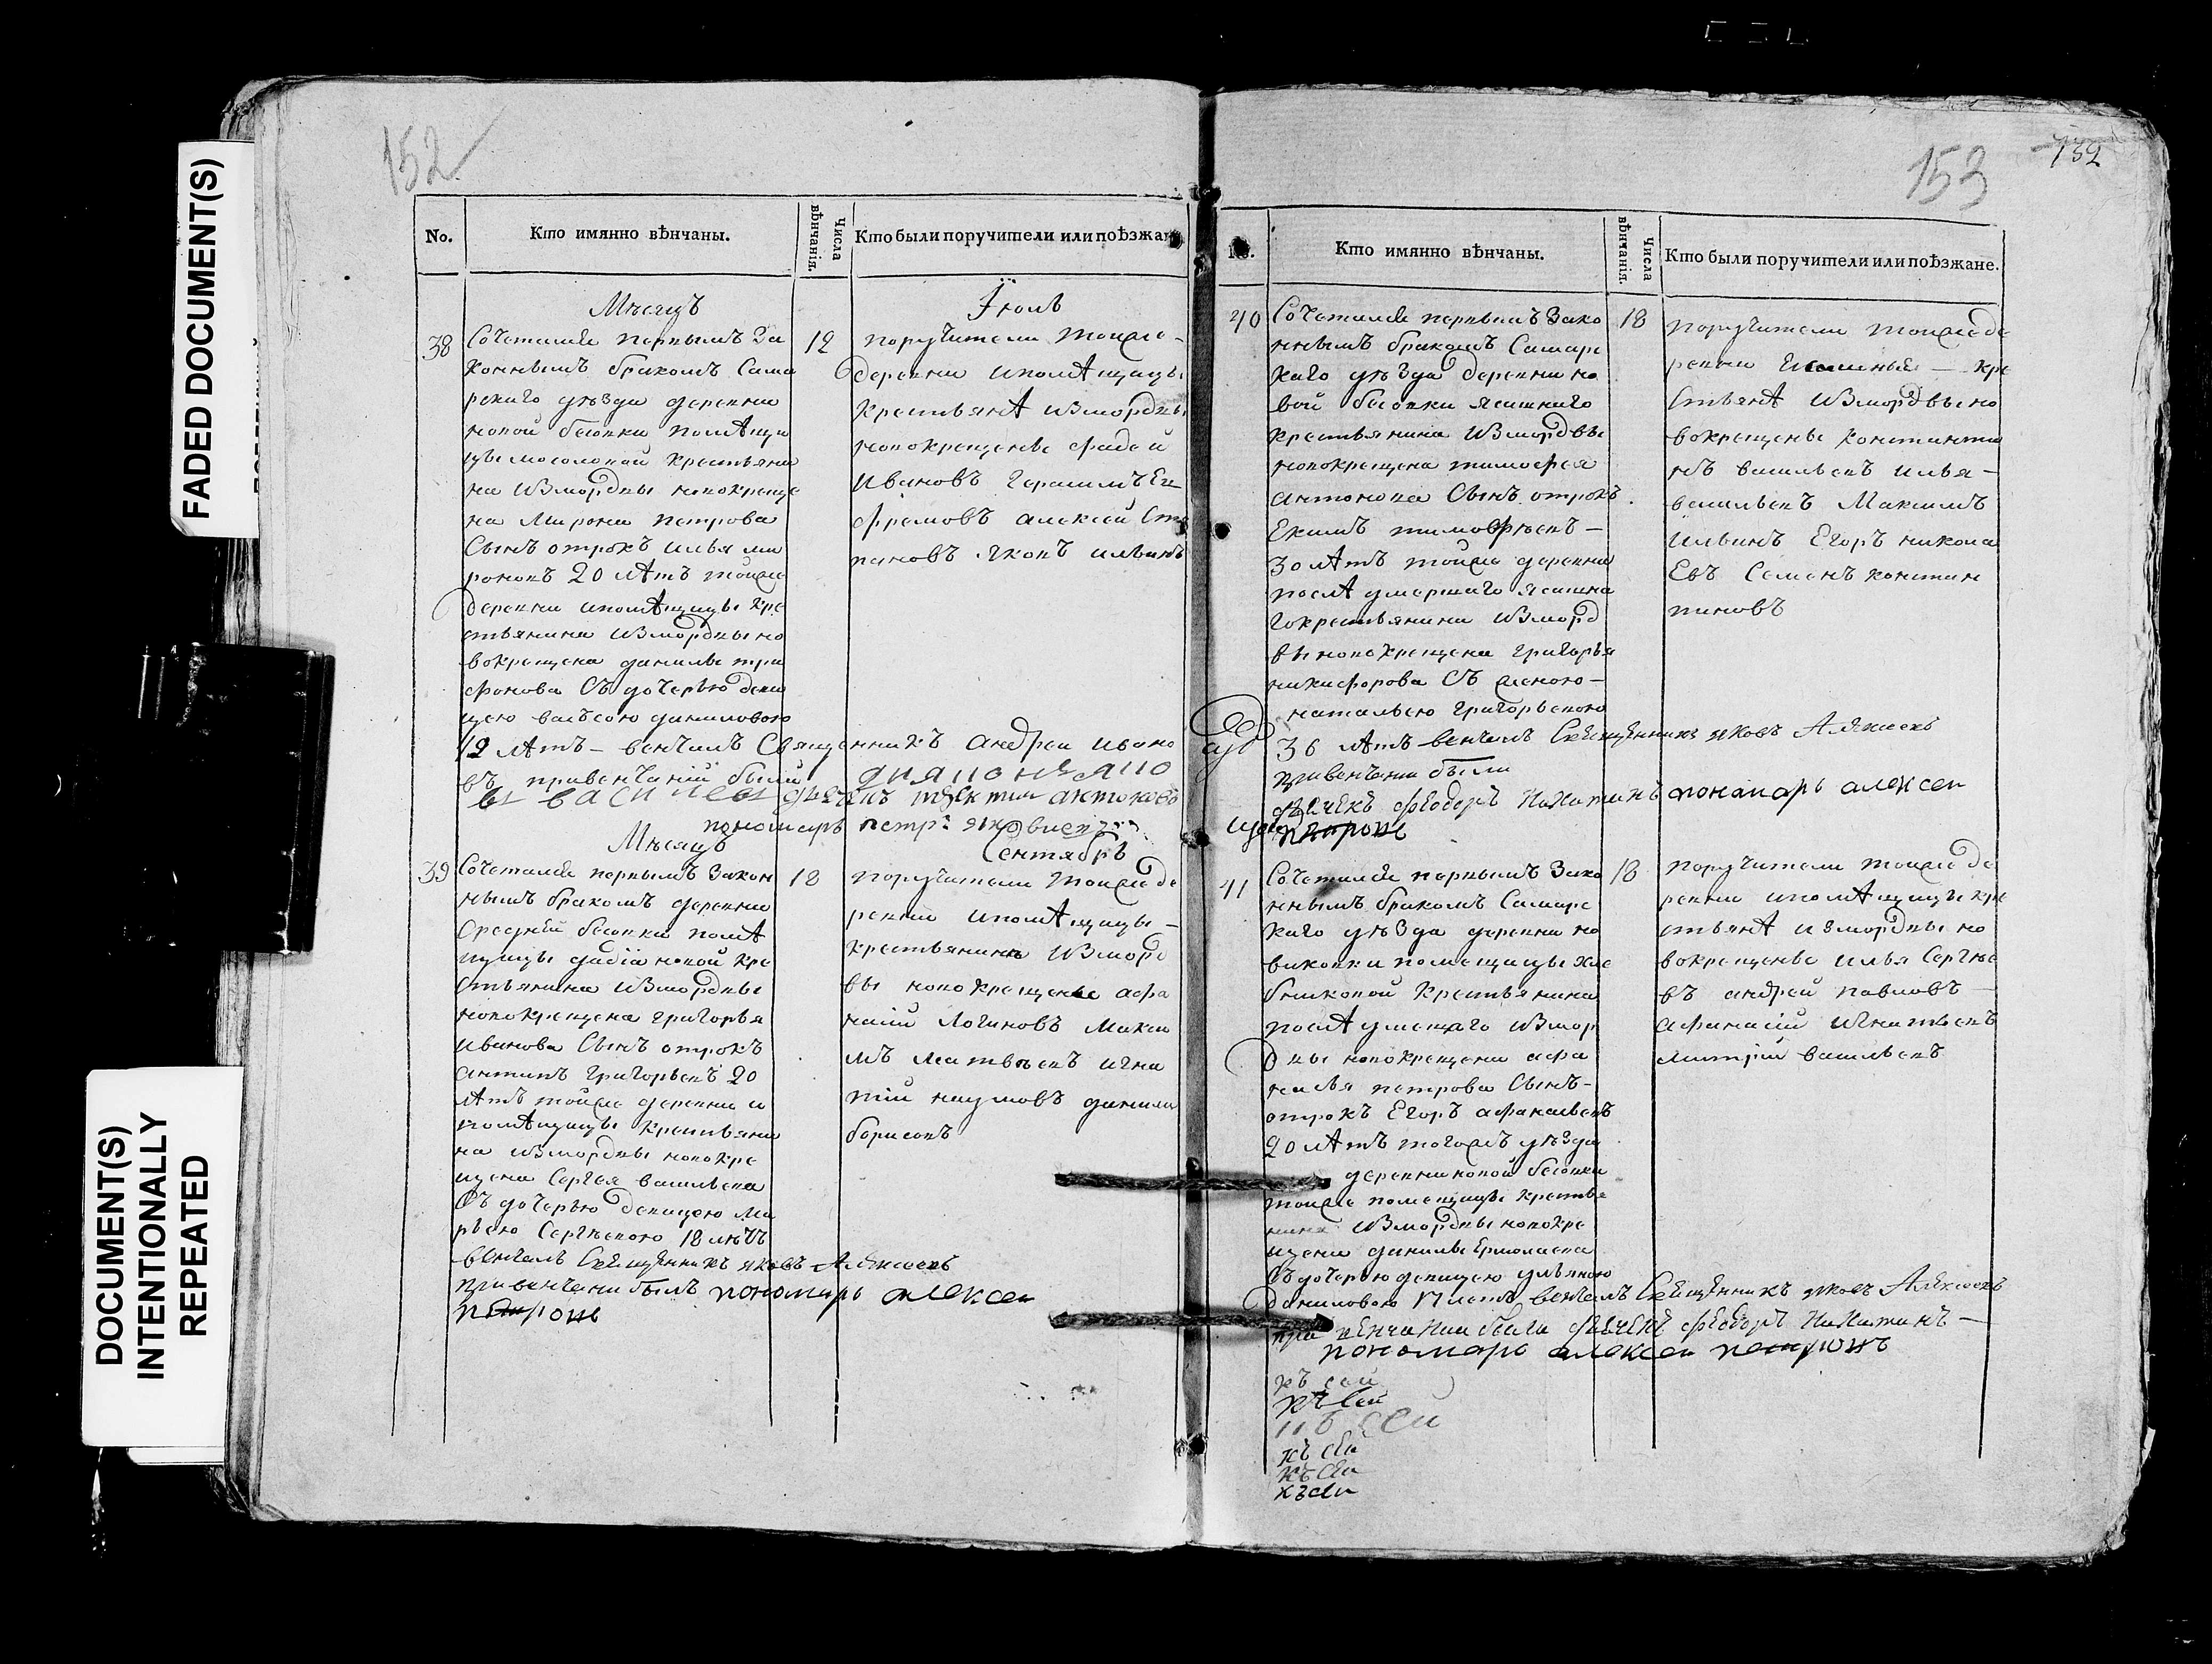 FADED DOCUMENT(S)
DOCUMENT(S)
INTENTIONALLY
REPEATED
152
No.
Кто имянно вѣнчаны.
Числа
вѣнчанія.
Кто были поручители или поѣзжан
Мѣсяцъ
Іюль
38
Сочетался первымъ За
коннымъ бракомъ Сама
рскаго уѣзда деревни
новой бесовки помѣщи
цы мосоловой крестьяни
на Измордвы новокреще
на Мирона петрова
Сынъ отрокъ илья ми
роновъ 20 лѣтъ тойже
деревни ипомѣщицы кре
стьянина Измордвы но
вокрещена данилы три
фонова Съ дочерью деви
цею васъсою даниловою
12 лѣтъ – венчалъ Священникъ андреи ивано
въ привенчаніи были
12
поручители тоиже –
деревни ипомѣщицы
крестьянѣ Измордвы
новокрещены фадей
Ивановъ герасимъ Еп
фремовъ алексей Сте
пановъ яковъ ильинъ
пономарь петръ
Мѣсяцъ
Сентябрь
39
Сочетался первымъ Закон
нымъ бракомъ деревни
Средней бесовки помѣ
щицы
крестьянина Измордвы
новокрещена григорья
Иванова Сынъ отрокъ
антипъ григорьевъ 20
лѣтъ тойже деревни и
помѣщицы крестьяни
на Измордвы новокре
щена Сергея васильева
Съ дочерью девицею Ма
рьею Сергѣевою 18 лѣтъ
венчалъ Священникъ яковъ Алѣксеевъ
привенчани былъ пономарь алексеи
петровъ
18
поручители тоиже де
ревни ипомѣщицы –
крестьянинъ Изморд
вы новокрещены афа
насій Логиновъ Макси
мъ матвѣевъ игна
тій наумовъ данила
борисовъ
153
132
No.
Кто имянно вѣнчаны.
Числа
вѣнчанія.
Кто были поручители или поѣзжане.
40
Сочетался первымъ Зако
ннымъ бракомъ Самарс
каго уѣзда деревни но
вой бесовки ясашнаго
крестьянина Измордвы
новокрещена тимофея
антонова Сынъ отрокъ
Екимъ тимофѣевъ –
30 лѣтъ тойже деревни
послѣ умершаго ясашна
гокрестьянина Изморд
вы новокрещена григорья
никифорова Съ женою –
натальею григорьевою
36 лѣтъ венчалъ Священникъ яковъ Алѣксеевъ
привенчани были
дьячекъ феодоръ Никитинъ пономарь алексеи
петровъ
18
поручители тоиже де
ревни кре
стьянѣ Измордвы но
вокрещены константи
нъ васильевъ илья –
васильевъ Максимъ
ильинъ Егоръ никола
Евъ Семенъ констан
тиновъ
41
Сочетался первымъ Зако
ннымъ бракомъ Самарс
каго уѣзда деревни но
помещицы
крестьянина
послѣ умершаго Измор
двы новокрещена афа
насья петрова Сынъ –
отрокъ Егоръ афанасьевъ
20 лѣтъ тогожъ уѣзда
деревни новой бесовки
тоиже помещицы крестья
нина Измордвы новокре
щена данилы Ермолаева
Съ дочерью девицею ульяною
даниловою 17 летъ венчалъ Священникъ яковъ Алѣксеевъ
при венчании были дьячекъ феодоръ Никитинъ –
пономарь алексеи петровъ
18
поручители тоиже де
ревни ипомѣщицы кре
стьянѣ измордвы но
вокрещены илья Сергѣе
въ андрей павловъ –
афанасій игнатьевъ
митрій васильевъ
къ сей
къ сей
къ сей
къ сей
къ сей